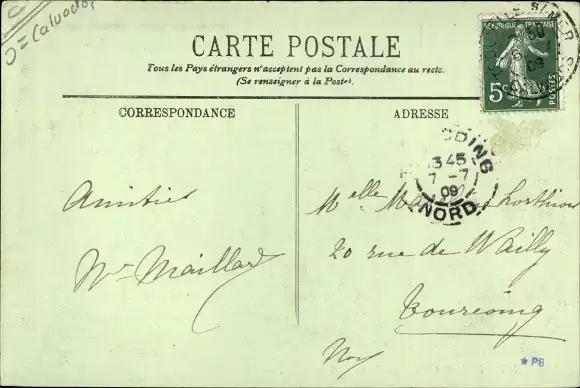 Calvados
CARTE POSTALE
Tous les Pays étrangers n'acceptent pas la Correspondance au recto.
(Se renseigner à la Poste).
RÉPUBLIQUE FRANÇAISE
5c
POSTES
CORRESPONDANCE
ADRESSE
Amitiés
Maillard
3 45
7 -7
09
NORD
Melle
20 rue de Wailly
Tourcoing
Nord
* PB